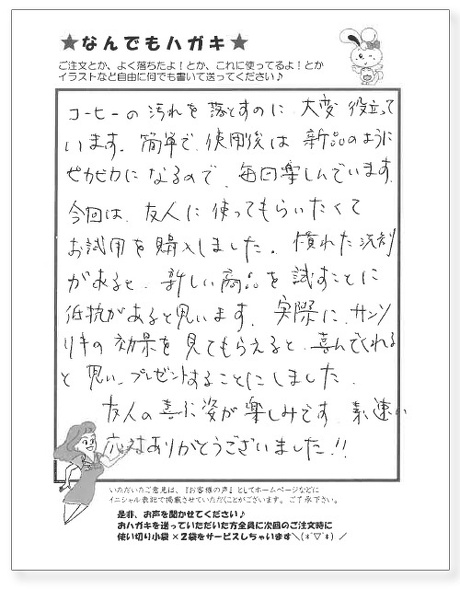 ★なんでもハガキ★
ご注文とか、よく落ちたよ！とか、これに使ってるよ！とか
イラストなど自由に何でも書いて送ってください♪
コーヒーの汚れを落とすのに大変役立って
います。簡単で、使用後は新品のように
ピカピカになるので、毎回楽しんでいます。
今回は、友人に使ってもらいたくて
お試用を購入しました。慣れた洗剤
があると、新しい商品を試すことに
抵抗があると思います。実際に、サンソ
リキの効果を見てもらえると、喜んでくれる
と思い、プレゼントすることにしました。
友人の喜ぶ姿が楽しみです。素速い
応対ありがとうございました!!
いただいたご意見は、『お客様の声』としてホームページなどに
イニシャル表記で掲載させていただくことがございます。ご了承下さい。
是非、お声を聞かせてください♪
おハガキを送っていただいた方全員に次回のご注文時に
使い切り小袋×2袋をサービスしちゃいます＼(*´▽`*)／